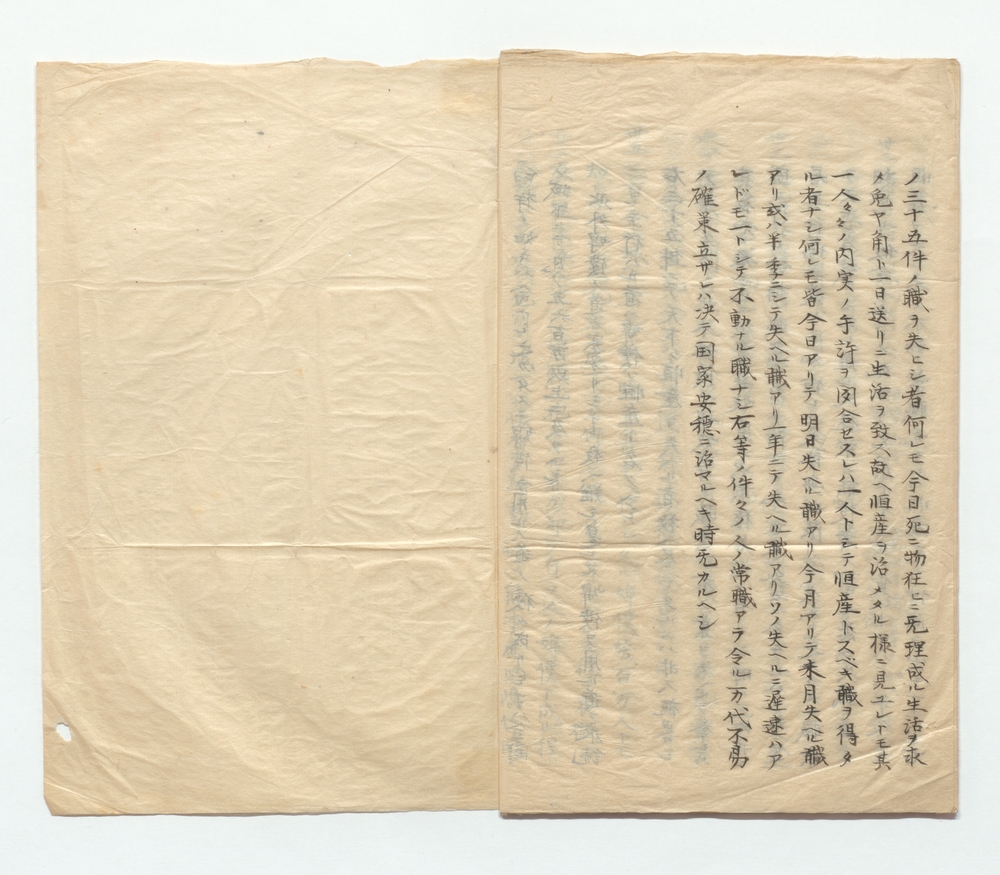 ノ三十五件ノ職ヲ失ヒシ者何レモ今日死ニ物狂ヒニ旡理成ル生活ヲ求
メ兔ヤ角ト一日送リニ生活ヲ致ス故ヘ恒産ヲ治メタル様ニ見エレトモ其
一人々々ノ内実ノ手許ヲ閊合セスレハ一人トシテ恒産トスベキ職ヲ得タ
ル者ナシ何レモ皆今日アリテ明日失ヘル職アリ今月アリテ来月失ヘル職
アリ或ハ半季ニシテ失ヘル職アリ一年ニテ失ヘル職アリソノ失ヘルニ遅速ハア
レドモ一トシテ不動ナル職ナシ右等ノ件々ノ人ノ常職アラ令ル万代不易
ノ確策立ザレハ决テ国家安穏ニ治マルヘキ時旡カルヘシ